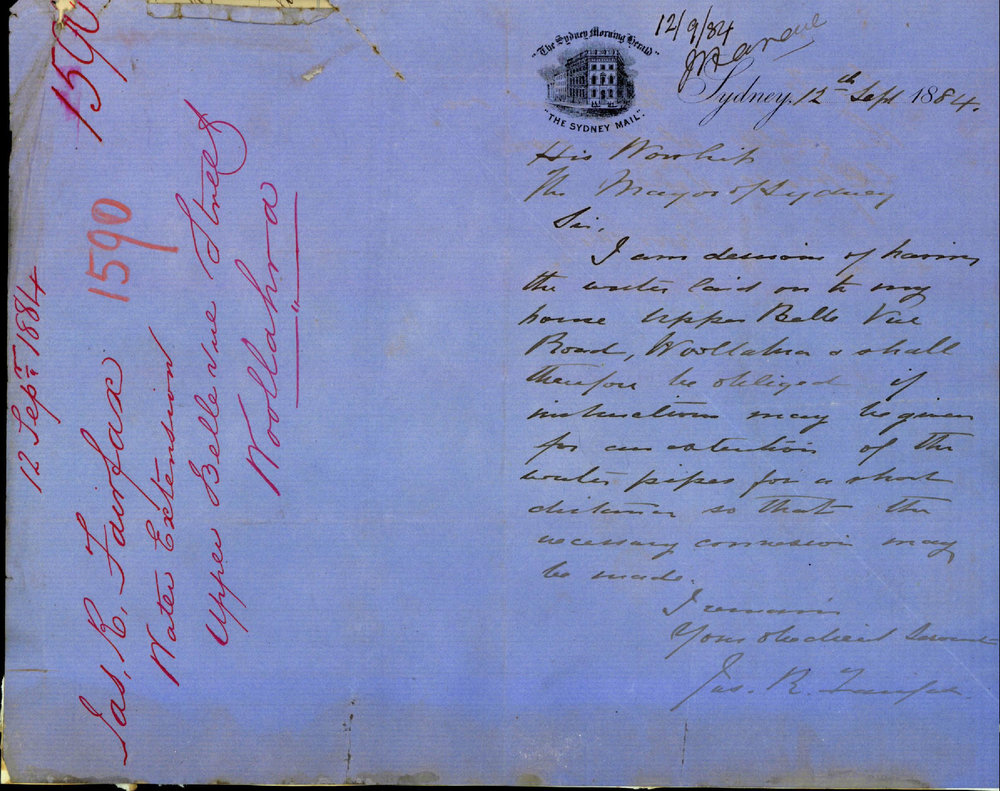 1590
1590
12 Sepr 1884
Jas. R. Fairfax
Water Extension
Upper Bellevue Street
Woollahra
12/9/84
"The Sydney Morning Herald"
"THE SYDNEY MAIL."
Sydney, 12th Sept 1884.
His Worship
The Mayor of Sydney
Sir,
I am desirous of having
the water laid on to my
house Upper Belle Vue
Road, Woollahra & shall
therefore be obliged if
instructions may be given
for an extention of the
water pipes for a short
distance so that the
necessary connexion may
be made.
I remain
Your obedient Servant
Jas. R. Fairfax